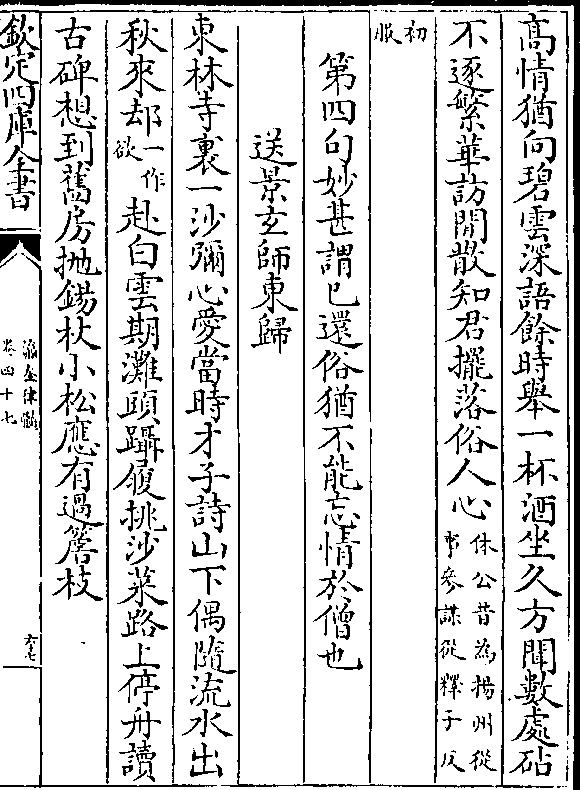 高情猶向碧雲深語餘時舉一杯酒坐久方聞數處砧
不逐繁華訪閒散知君擺落俗人心休公昔為揚州從
事參謀從釋子反
初服
第四句妙甚謂已還俗猶不能忘情於僧也
送景玄師東歸
東林寺裏一沙彌心愛當時才子詩山下偶隨流水出
秋來却一作
欲赴白雲期灘頭躡履挑沙菜路上停舟讀
古碑想到舊房拋錫杖小松應有過簷枝
欽定四庫全書
瀛奎律髓
卷四十七
六七